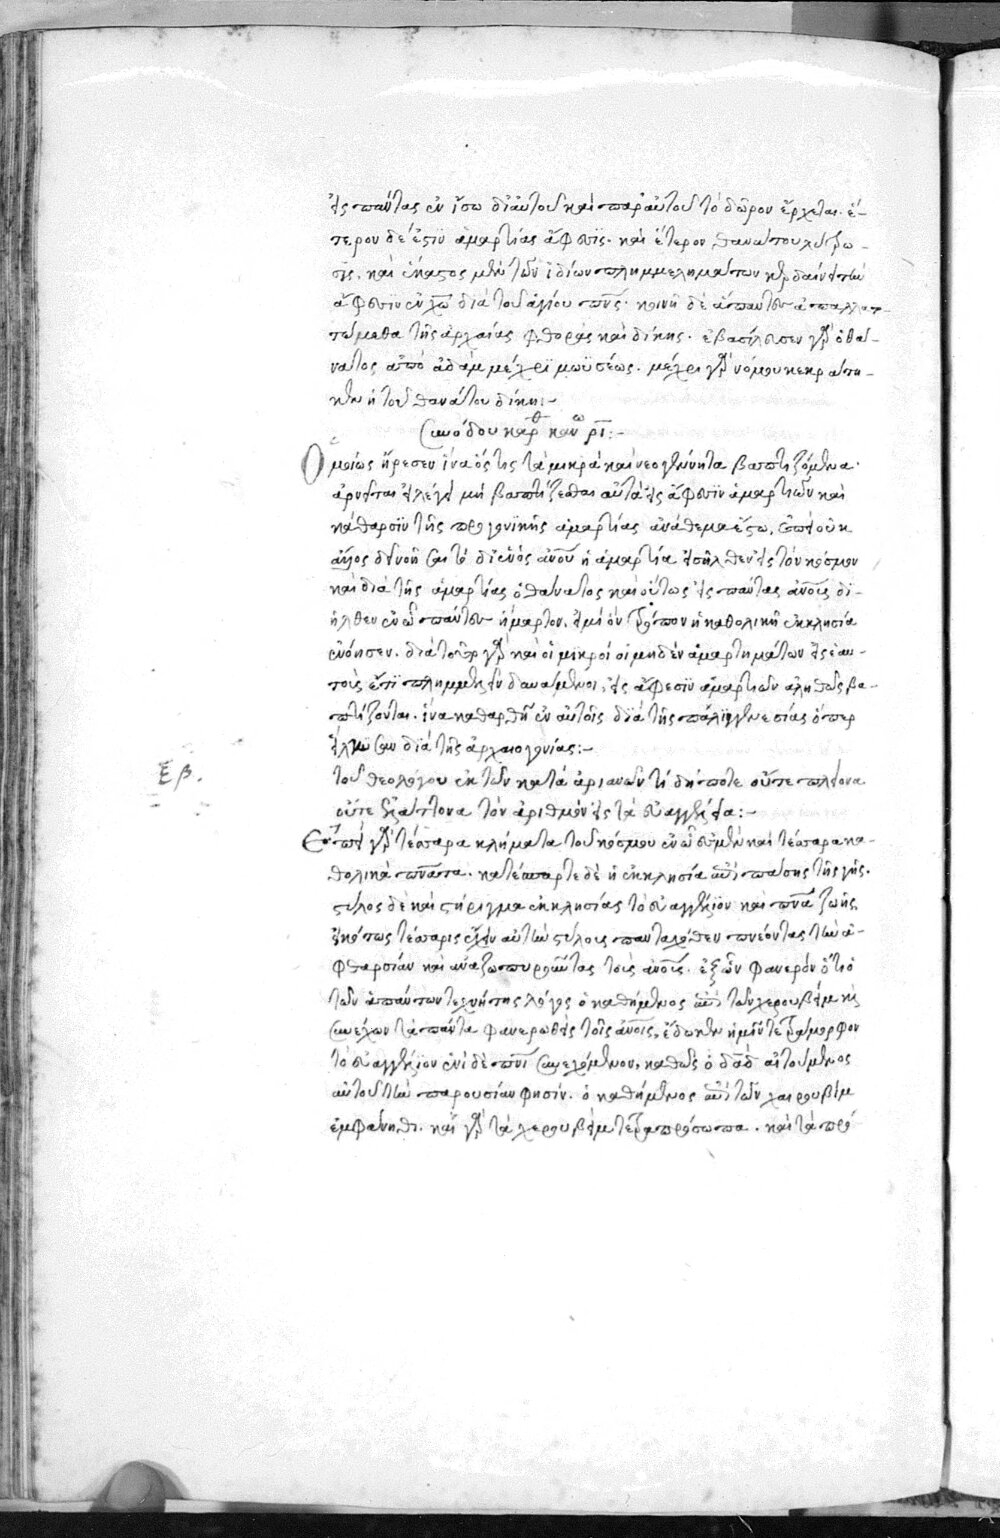 εἰς πάντας ἐν ἴσω δι αὐτοῦ καὶ παρ αὐτοῦ τὸ δῶρον ἔρχεται. ἕ-
τερον δέ ἐστιν ἁμαρτίας ἄφεσις. καὶ ἕτερον θανάτου λύτρω-
σις. καὶ ἕκαστος μὲν τῶν ἰδίων πλημμελημάτων κερδαίνει τὴν
ἄφεσιν ἐν χω διὰ τοῦ ἁγίου πνς. κοινῆ δὲ ἅπαντες ἀπαλλατ-
τόμεθα τῆς ἀρχαίας φθορᾶς καὶ δίκης. ἐβασίλευσεν γὰρ ὁ θά-
νατος ἀπὸ ἀδὰμ μέχρι μωϋσέως. μέχρι γὰρ νόμου κεκράτη-
κεν ἡ τοῦ θανάτου δίκη:-
Συνόδου καρθ κανω ρι:-
Ὁμοίως ἤρεσεν ἵνα ὅς τις τὰ μικρὰ καὶ νεογέννητα βαπτιζόμενα
ἀρνεῖται ἢ λέγει μὴ βαπτίζεσθαι αὐτὰ εἰς ἄφεσιν ἁμαρτιῶν καὶ
κάθαρσιν τῆς προγονικῆς ἁμαρτίας ἀνάθεμα ἔστω. ἐπεὶ οὐκ
ἄλλως δεῖ νοῆσαι τό δι ἑνὸς ἀνου ἡ ἁμαρτία εἰσῆλθεν εἰς τὸν κόσμον
καὶ διὰ τῆς ἁμαρτίας ὁ θάνατος καὶ οὕτως εἰς πάντας ἀνους δι-
ῆλθεν ἐν ὧ πάντες ἥμαρτον. εἰ μὴ ὃν τρόπον ἡ καθολικὴ ἐκκλησία
ἐνόησεν. διὰ τοῦτο γὰρ καὶ οἱ μικροὶ οἱ μηδὲν ἁμαρτημάτων εἰς ἑαυ-
τοὺς ἔτι πλημμελεῖν δυνάμενοι, εἰς ἄφεσιν ἁμαρτιῶν ἀληθῶς βα-
πτίζονται. ἵνα καθαρθῆ ἐν αὐτοῖς διὰ τῆς παλιγγενεσίας ὅπερ
εἵλκυσαν διὰ τῆς ἀρχαιογονίας:-
Ἐβ.
τοῦ θεολόγου ἐκ τῶν κατὰ ἀριανῶν τί δήποτε οὔτε πλείονα
οὔτε ἐλάττονα τὸν ἀριθμὸν εἰσὶ τὰ εὐαγγέλια:-
Ἐπεὶ γὰρ τέσσαρα κλίματα τοῦ κόσμου ἐν ὧ ἐσμὲν καὶ τέσσαρα κα-
θολικὰ πνατα. κατέσπαρται δὲ ἡ ἐκκλησία ἐπὶ πάσης τῆς γῆς.
στύλος δὲ καὶ στήριγμα ἐκκλησίας τὸ εὐαγγέλιον καὶ πνα ζωῆς
εἰκότως τέσσαρις ἔχειν αὐτὴν στύλους πανταχόθεν πνέοντας τὴν ἀ-
φθαρσίαν καὶ ἀναζωπυροῦντας τοὺς ἀνους. ἐξ ὧν φανερὸν ὅτι ὁ
τῶν ἁπάντων τεχνίτης λόγος ὁ καθήμενος ἐπὶ τῶν χερουβὶμ καὶ
συνέχων τὰ πάντα φανερωθεὶς τοῖς ἀνοις, ἔδωκεν ἡμῖν τετράμορφον
τὸ εὐαγγέλιον ἑνὶ δὲ πνι συνεχόμενον. καθὼς ὁ δαδ αἰτούμενος
αὐτοῦ τὴν παρουσίαν φησίν. ὁ καθήμενος ἐπὶ τῶν χαιρουβὶμ
ἐμφάνηθι. καὶ γὰρ τὰ χερουβὶμ τετραπρόσωπα. καὶ τὰ πρό